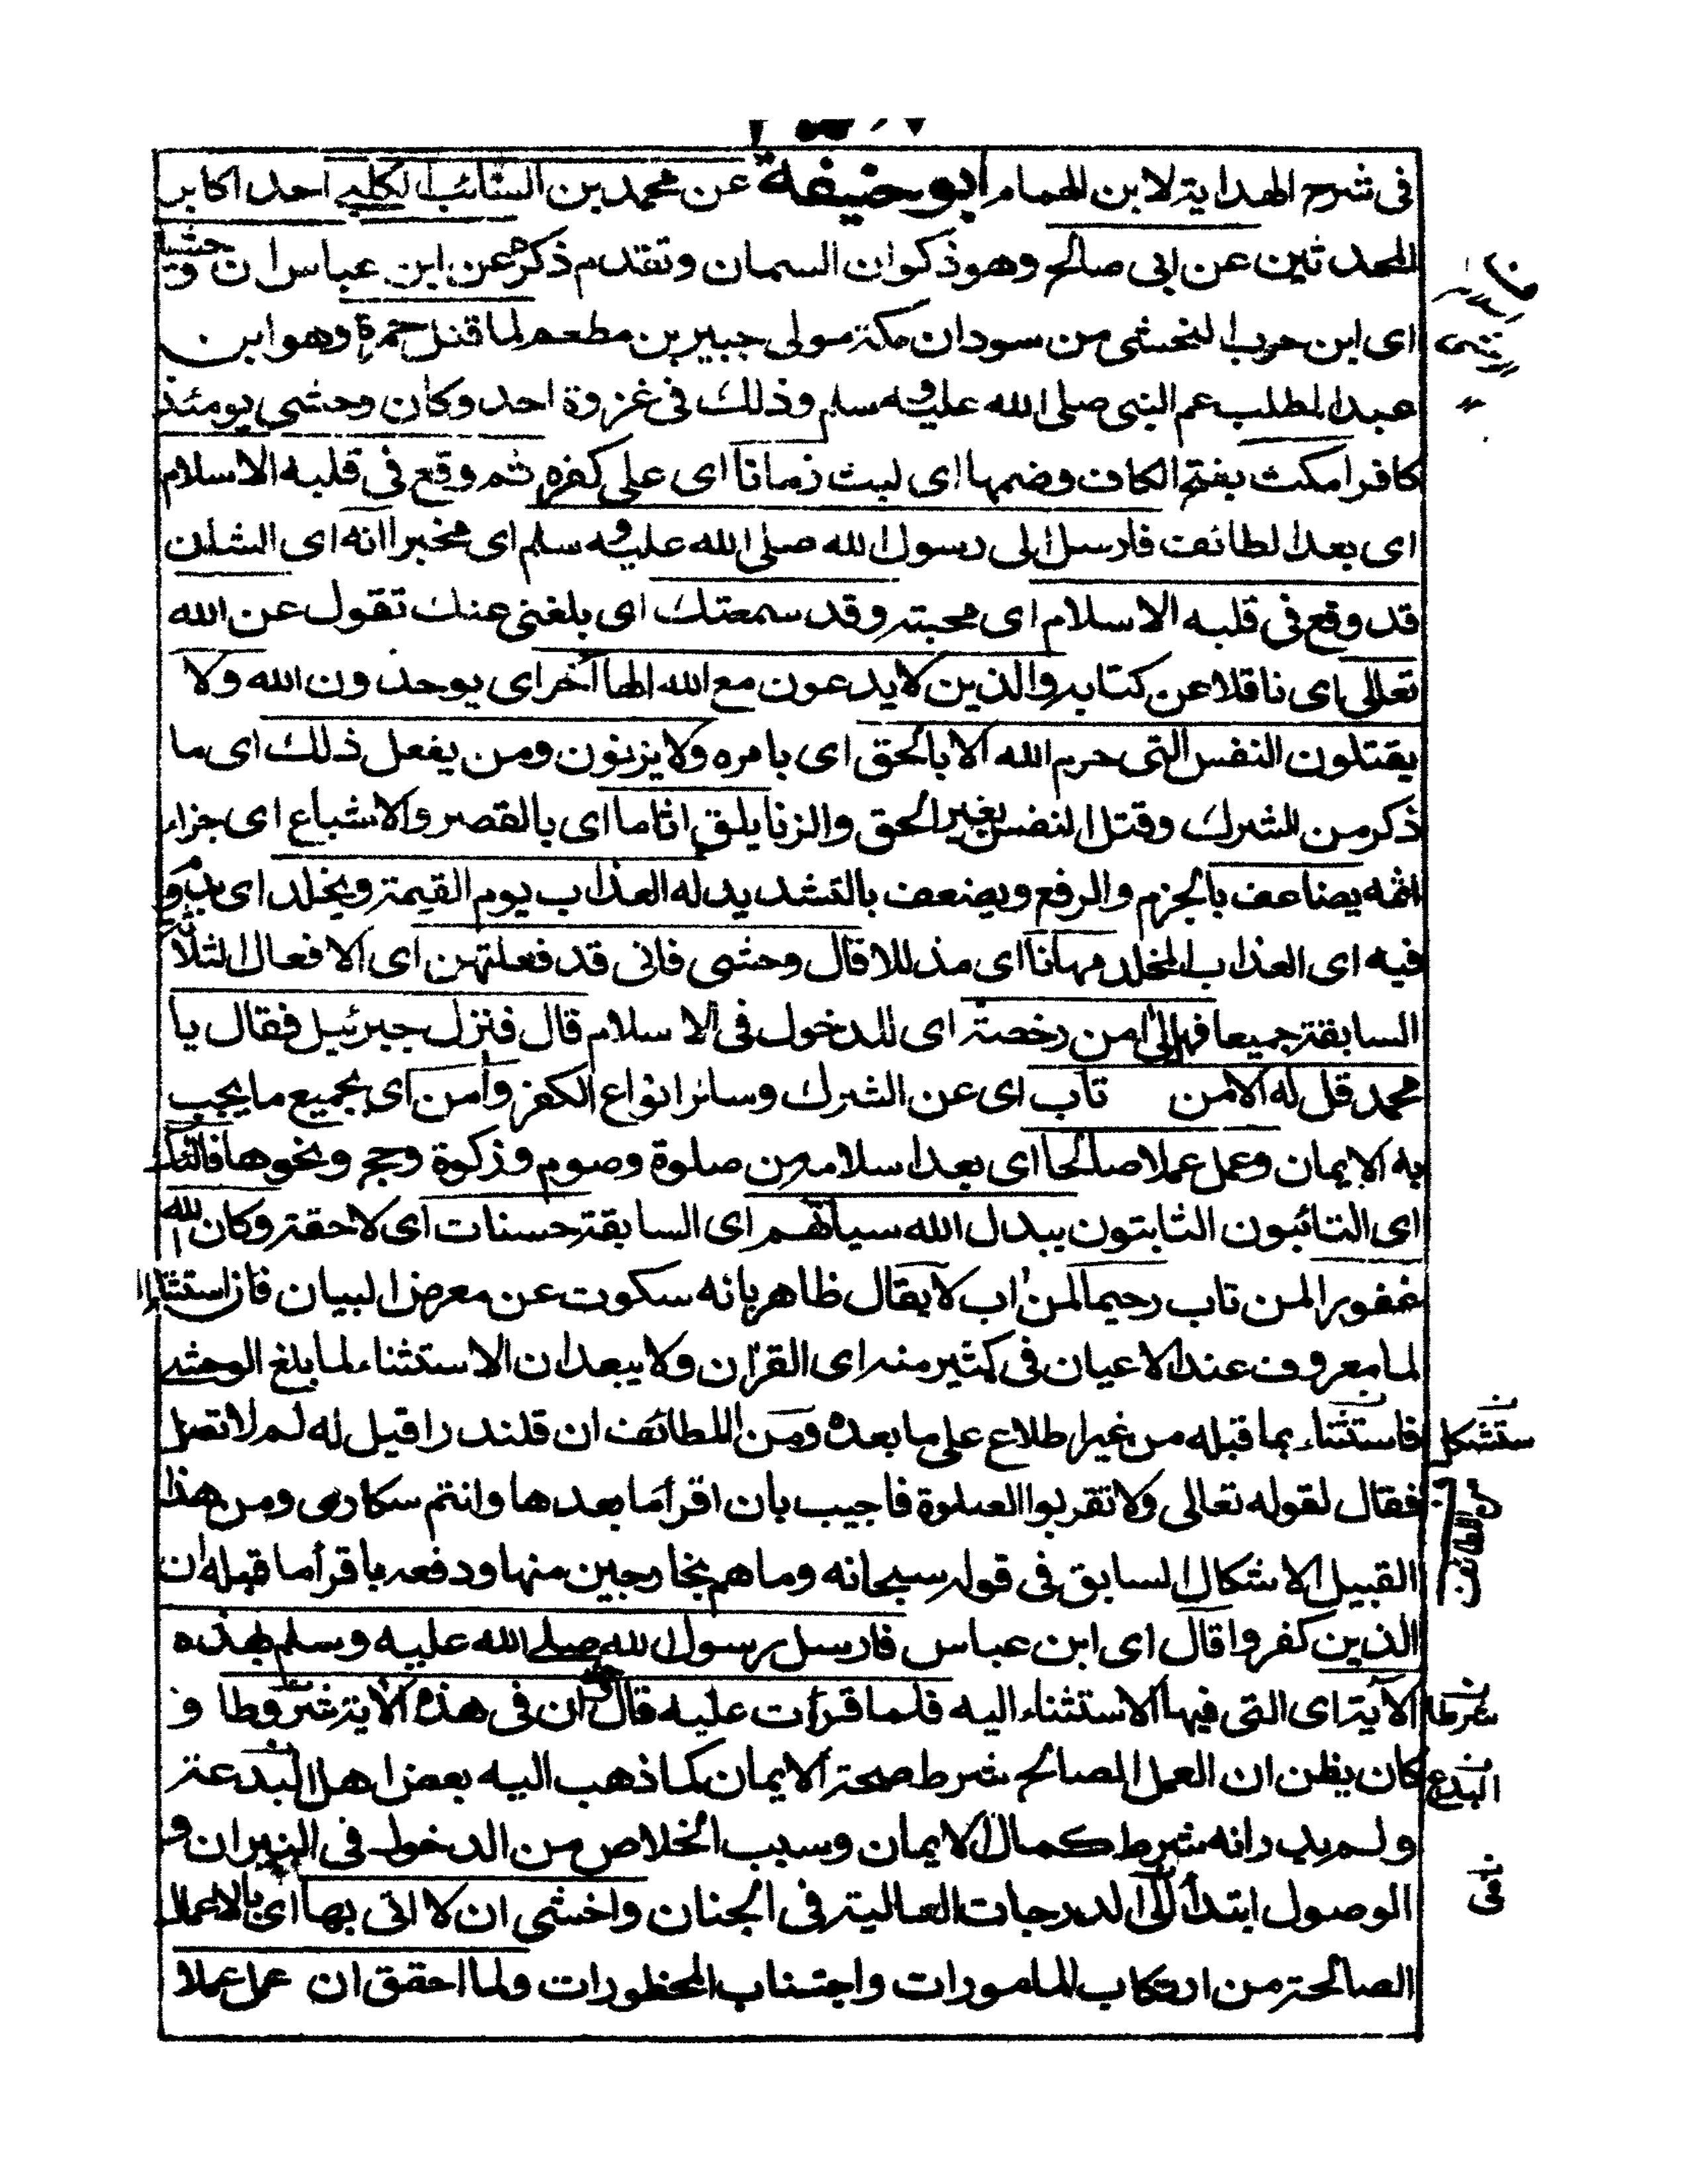 فى شرح الهداية لابن الهمام ابو حنيفة عن محمد بن السائب الكلبي احد اكابر
المحدثين عن ابى صالح وهو ذكوان السمان وتقدم ذكره عن ابن عباس ان وحشيا
اى ابن حرب الحبشى من سودان مكة مولى جبير بن مطعم لما قتل حمزة وهو ابن
عبد المطلب عم النبى صلى الله عليه وسلم وذلك فى غزوة احد وكان وحشى يومئذ
كافرا مكث بفتح الكاف وضمها اى لبث زمانا اى على كفره ثم وقع فى قلبه الاسلام
اى بعد الطائف فارسل الى رسول الله صلى الله عليه وسلم اى مخبرا انه اى الشان
قد وقع فى قلبه الاسلام اى محبته وقد سمعتك اى بلغنى عنك تقول عن الله
تعالى اى ناقلا عن كتابه والذين لا يدعون مع الله الها آخر اى يوحدون الله ولا
يقتلون النفس التى حرم الله الا بالحق اى بامره ولا يزنون ومن يفعل ذلك اى ما
ذكر من الشرك وقتل النفس بغير الحق والزنا يلق اثاما اى بالقصر والاشباع اى جزاء
اثمه يضاعف بالجزم والرفع ويضعف بالتشديد له العذاب يوم القيمة ويخلد اى يدوم
فيه اى العذاب المخلد مهانا اى مذللا قال وحشى فانى قد فعلتهن اى الافعال الثلاثة
السابقة جميعا فهل لى من رخصة اى للدخول فى الاسلام قال فنزل جبرئيل فقال يا
محمد قل له الا من تاب اى عن الشرك وسائر انواع الكفر وآمن اى بجميع ما يجب
به الايمان وعمل عملا صالحا اى بعد اسلامه من صلوة وصوم وزكوة وحج ونحوها فاولئك
اى التائبون الثابتون يبدل الله سياتهم اى السابقة حسنات اى لاحقة وكان الله
غفورا لمن تاب رحيما لمن اب لا يقال ظاهره بانه سكوت عن معرض البيان فان استثناء
لما معروف عند الاعيان فى كثير منه اى القرآن ولا يبعد ان الاستثناء لما بلغ الوحشى
فاستثناء بما قبله من غير اطلاع على ما بعده ومن اللطائف ان قلندرا قيل له لم لا تصل
فقال لقوله تعالى ولا تقربوا الصلوة فاجيب بان اقرأ ما بعدها وانتم سكارى ومن هذا
القبيل الاشكال السابق فى قوله سبحانه وما هم بخارجين منها ودفعه باقرأ ما قبله ان
الذين كفروا قال اى ابن عباس فارسل رسول الله صلى الله عليه وسلم بهذه
الآية اى التى فيها الاستثناء اليه فلما قرأت عليه قال ان فى هذه الاية شروطا و
كان يظن ان العمل الصالح شرط صحة الايمان كما ذهب اليه بعض اهل البدعة
ولم يدر انه شرط كمال الايمان وسبب الخلاص من الدخول فى النيران و
الوصول ابتدأ الى الدرجات العالية فى الجنان واخشى ان لا اتى بها اى بالاعمال
الصالحة من ارتكاب المامورات واجتناب المحظورات ولما احقق ان عمل عملا
ستشكل
من الطائف
شرطا
البدع
فى